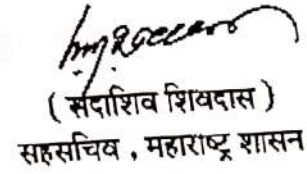 ( सदाशिव शिवदास )
सहसचिव , महाराष्ट्र शासन